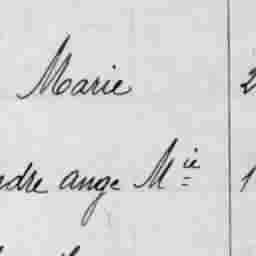 Marie 2
ndre ange Mie 1